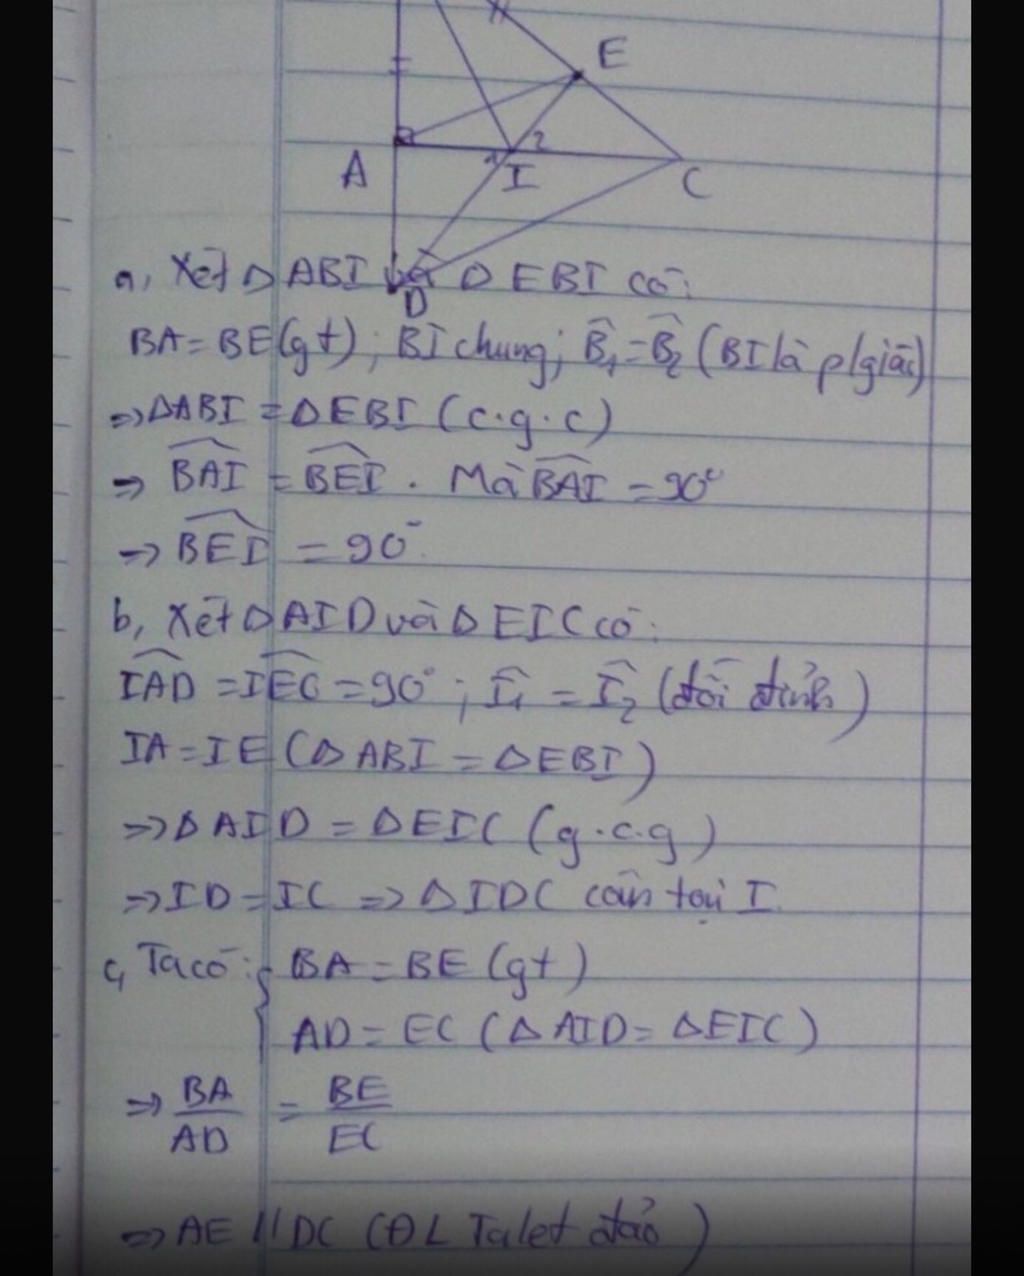 E
A
1
2
I
C
D
a, Xét Δ ABI và Δ EBI có:
BA = BE (gt); BI chung; B̂₁ = B̂₂ (BI là p/giác)
⇒ ΔABI = ΔEBI (c.g.c)
⇒ \widehat{BAI} = \widehat{BEI}. Mà \widehat{BAI} = 90°
⇒ \widehat{BEI} = 90°.
b, Xét Δ AID và Δ EIC có:
\widehat{IAD} = \widehat{IEC} = 90°; Î₁ = Î₂ (đối đỉnh)
IA = IE (Δ ABI = Δ EBI)
⇒ Δ AID = ΔEIC (g.c.g)
⇒ ID = IC ⇒ Δ IDC cân tại I.
c, Ta có: { BA = BE (gt)
AD = EC (Δ AID = ΔEIC)
⇒ BA/AD = BE/EC
⇒ AE // DC (ĐL Talet đảo)